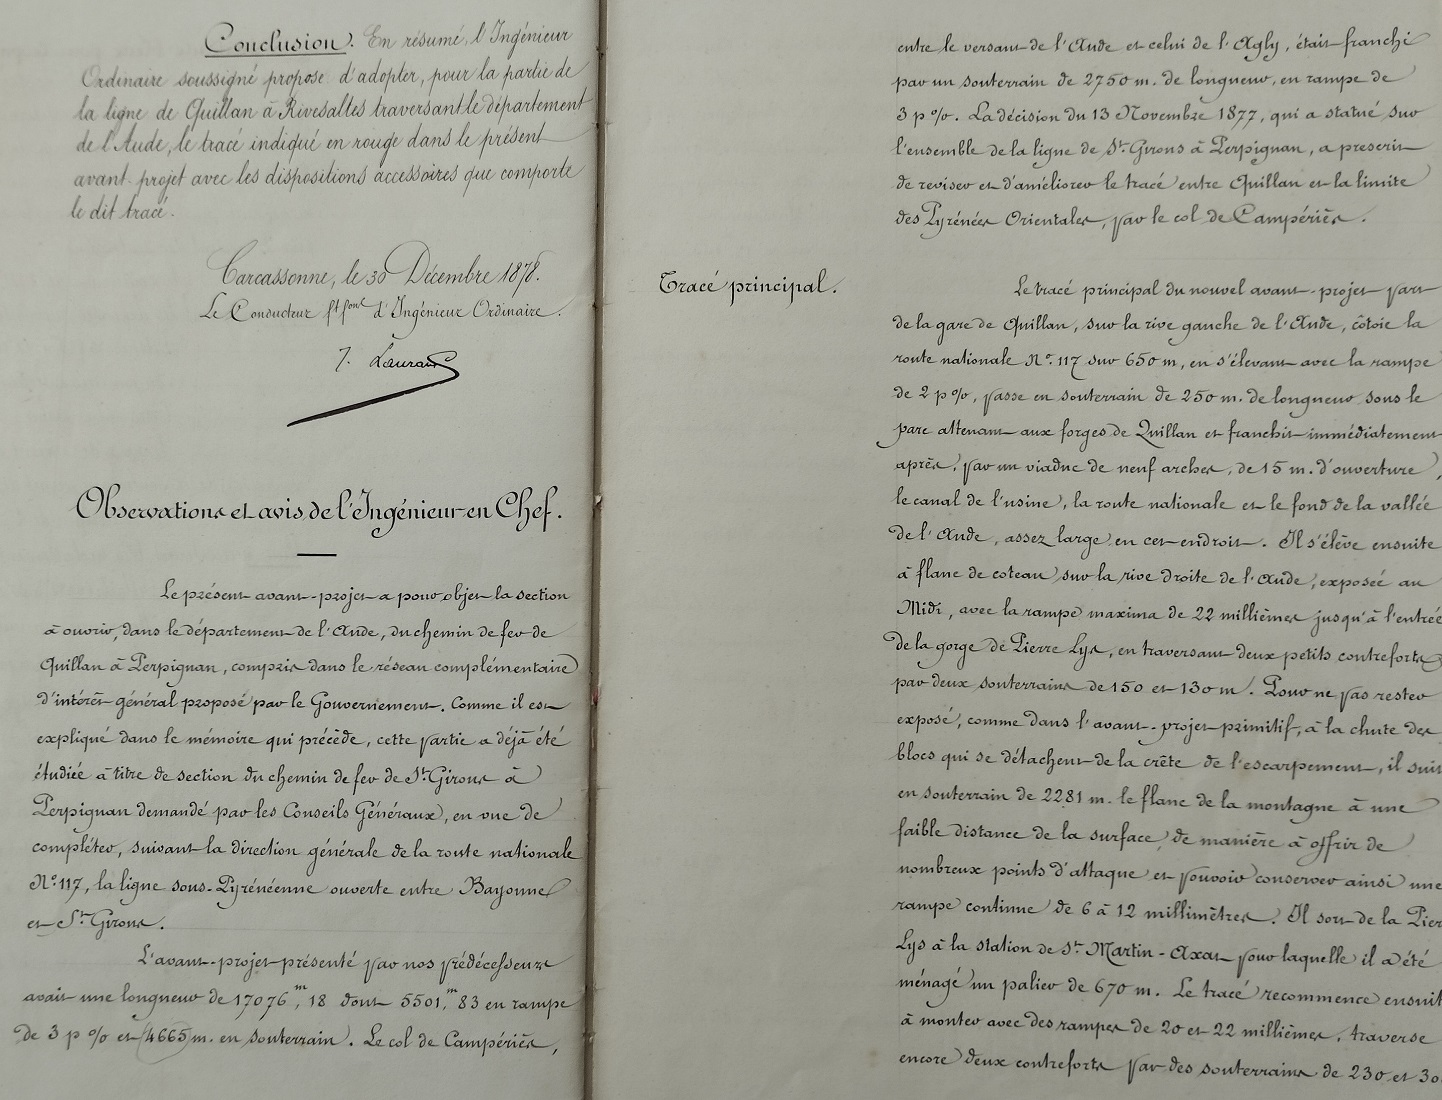 Conclusion. En résumé, l'Ingénieur
Ordinaire soussigné propose d'adopter, pour la partie de
la ligne de Quillan à Rivesaltes traversant le département
de l'Aude, le tracé indiqué en rouge dans le présent
avant-projet avec les dispositions accessoires que comporte
le dit tracé.
Carcassonne, le 30 Décembre 1878.
Le Conducteur ft font d'Ingénieur Ordinaire.
Observations et avis de l'Ingénieur en Chef.
Le présent avant-projet a pour objet la section
à ouvrir, dans le département de l'Aude, du chemin de fer de
Quillan à Perpignan, compris dans le réseau complémentaire
d'intérêt général proposé par le Gouvernement. Comme il est
expliqué dans le mémoire qui précède, cette partie a déjà été
étudiée à titre de section du chemin de fer de St Girons à
Perpignan demandé par les Conseils Généraux, en vue de
compléter, suivant la direction générale de la route nationale
No 117, la ligne sous-Pyrénéenne ouverte entre Bayonne
et St Girons.
L'avant-projet présenté par nos prédécesseurs
avait une longueur de 17076m,18 dont 5501,m83 en rampe
de 3 p % et 4665 m. en souterrain. Le col de Campériès,
entre le versant de l'Aude et celui de l'Agly, était franchi
par un souterrain de 2750 m. de longueur, en rampe de
3 p %. La décision du 13 Novembre 1877, qui a statué sur
l'ensemble de la ligne de St Girons à Perpignan, a prescrit
de reviser et d'améliorer le tracé entre Quillan et la limite
des Pyrénées Orientales, par le col de Campériès.
Tracé principal.
Le tracé principal du nouvel avant-projet part
de la gare de Quillan, sur la rive gauche de l'Aude, côtoie la
route nationale No 117 sur 650 m, en s'élevant avec la rampe
de 2 p %, passe en souterrain de 250 m. de longueur sous le
parc attenant aux forges de Quillan et franchit immédiatement
après, par un viaduc de neuf arches, de 15 m. d'ouverture,
le canal de l'usine, la route nationale et le fond de la vallée
de l'Aude, assez large en cet endroit. Il s'élève ensuite
à flanc de coteau sur la rive droite de l'Aude, exposée au
Midi, avec la rampe maxima de 22 millièmes jusqu'à l'entrée
de la gorge de Pierre Lys, en traversant deux petits contreforts
par deux souterrains de 150 et 130 m. Pour ne pas rester
exposé, comme dans l'avant-projet primitif, à la chute des
blocs qui se détachent de la crête de l'escarpement, il suit
en souterrain de 2281 m. le flanc de la montagne à une
faible distance de la surface, de manière à offrir de
nombreux points d'attaque et pouvoir conserver ainsi une
rampe continue de 6 à 12 millimètres. Il sort de la Pier
Lys à la station de St Martin-Axat pour laquelle il a été
ménagé un palier de 670 m. Le tracé recommence ensuit
à monter avec des rampes de 20 et 22 millièmes, traverse
encore deux contreforts par des souterrains de 230 et 30